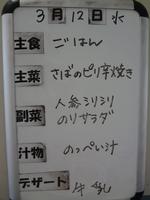 3月12日 水
主食 ごはん
主菜 さばのピリ辛焼き
副菜 人参シリシリ
のりサラダ
汁物 のっぺい汁
デザート